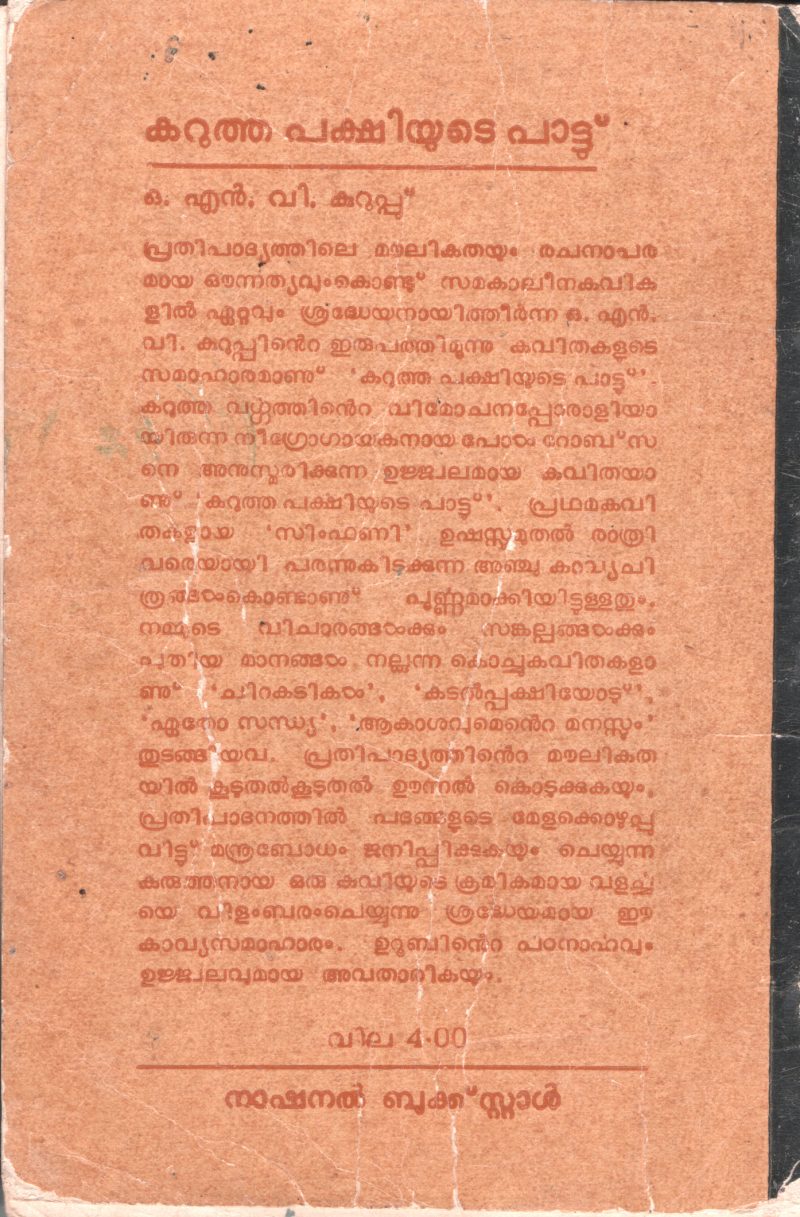 കറുത്ത പക്ഷിയുടെ പാട്ടു്
ഒ. എൻ. വി. കുറുപ്പു്
പ്രതിപാദ്യത്തിലെ മൗലികതയും രചനാപര
മായ ഔന്നത്യവുംകൊണ്ടു് സമകാലീനകവിക
ളിൽ ഏറ്റവും ശ്രദ്ധേയനായിത്തീർന്ന ഒ. എൻ.
വി. കുറുപ്പിന്റെ ഇരുപത്തിമൂന്നു കവിതകളുടെ
സമാഹാരമാണു് 'കറുത്ത പക്ഷിയുടെ പാട്ടു്'.
കറുത്ത വർഗ്ഗത്തിന്റെ വിമോചനപ്പോരാളിയാ
യിരുന്ന നീഗ്രോഗായകനായ പോൾ റോബ്സ
നെ അനുസ്മരിക്കുന്ന ഉജ്ജ്വലമായ കവിതയാ
ണു് 'കറുത്ത പക്ഷിയുടെ പാട്ടു്'. പ്രഥമകവി
തകളായ 'സിംഫണി' ഉഷസ്സുമുതൽ രാത്രി
വരെയായി പരന്നുകിടക്കുന്ന അഞ്ചു കാവ്യചി
ത്രങ്ങൾകൊണ്ടാണു് പൂർണ്ണമാക്കിയിട്ടുള്ളതും.
നമ്മുടെ വിചാരങ്ങൾക്കും സങ്കല്പങ്ങൾക്കും
പുതിയ മാനങ്ങൾ നല്കുന്ന കൊച്ചുകവിതകളാ
ണു് 'ചിറകടികൾ', 'കടൽപ്പക്ഷിയോടു്',
'ഏതോ സന്ധ്യ', 'ആകാശവുമെന്റെ മനസ്സും'
തുടങ്ങിയവ. പ്രതിപാദ്യത്തിന്റെ മൗലികത
യിൽ കൂടുതൽകൂടുതൽ ഊന്നൽ കൊടുക്കുകയും,
പ്രതിപാദനത്തിൽ പദങ്ങളുടെ മേളക്കൊഴുപ്പു
വിട്ടു് മന്ത്രബോധം ജനിപ്പിക്കുകയും ചെയ്യുന്ന
കരുത്തനായ ഒരു കവിയുടെ ക്രമികമായ വളർച്ച
യെ വിളംബരംചെയ്യുന്നു ശ്രദ്ധേയമായ ഈ
കാവ്യസമാഹാരം. ഉറൂബിന്റെ പഠനാർഹവും
ഉജ്ജ്വലവുമായ അവതാരികയും.
വില 4·00
നാഷനൽ ബുക്ക്സ്റ്റാൾ